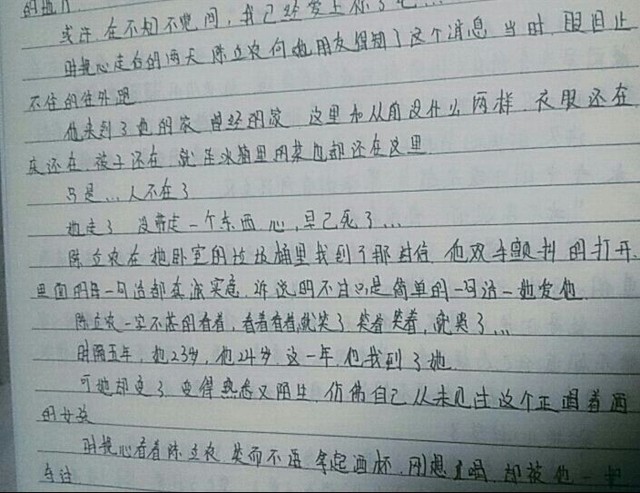 的地方
或许,在不知不觉间,我已经爱上你了吧...
时挽心走后的两天 陈立农向她朋友得知了这个消息 当时,眼泪止
不住的往外跑
他来到了她的家 曾经的家 这里和从前没什么两样 衣服还在
床还在,被子还在 就连冰箱里的菜也都还在这里
只是...人不在了
她走了 没带走一个东西 心,早已死了...
陈立农在她卧室的垃圾桶里找到了那封信 他双手颤抖的打开,
里面的每一句话都在 诉说 只是简单的一句话-她爱他
陈立农一字不落的看着,看着看着,就笑了 笑着笑着,就哭了...
时隔五年,她23岁,他24岁,这一年,他找到了她
可她却变了 变得熟悉又陌生 仿佛自己从未见过这个正喝着酒
的女孩
时挽心看着陈立农 笑而不语 拿起酒杯,刚想喝 却被他一把
夺过